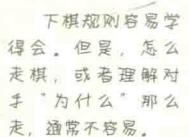 下棋规则容易学
得会。但是，怎么
走棋，或者理解对
手“为什么”那么
走，通常不容易。